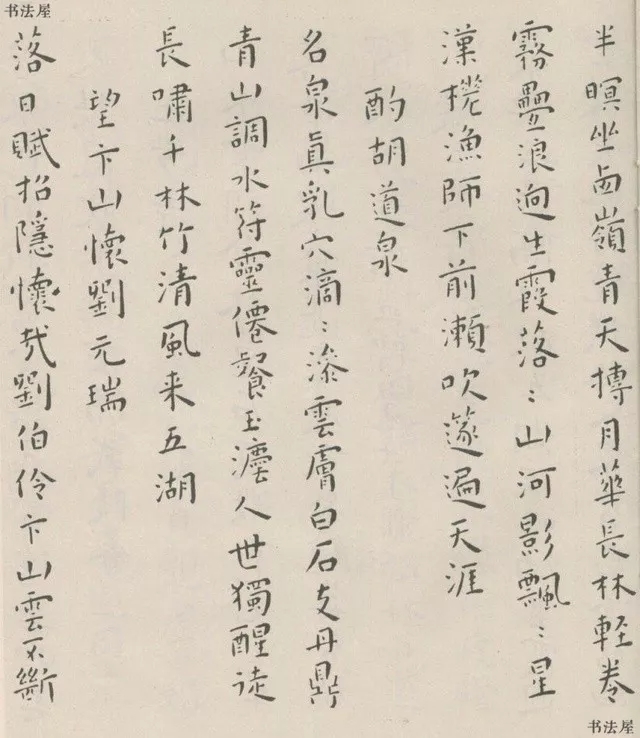 书法屋
半暝坐西嶺青天摶月華長林輕卷
霧疊浪迥生霞落〻山河影飄〻星
漢槎漁師下前瀨吹篴遍天涯
酌胡道泉
名泉真乳穴滴〻滲雲膚白石支丹鼎
青山調水符靈僊餐玉瀣人世獨醒徒
長嘯千林竹清風来五湖
望卞山懷劉元瑞
落日賦招隱懷哉劉伯伶卞山雲不斷
书法屋